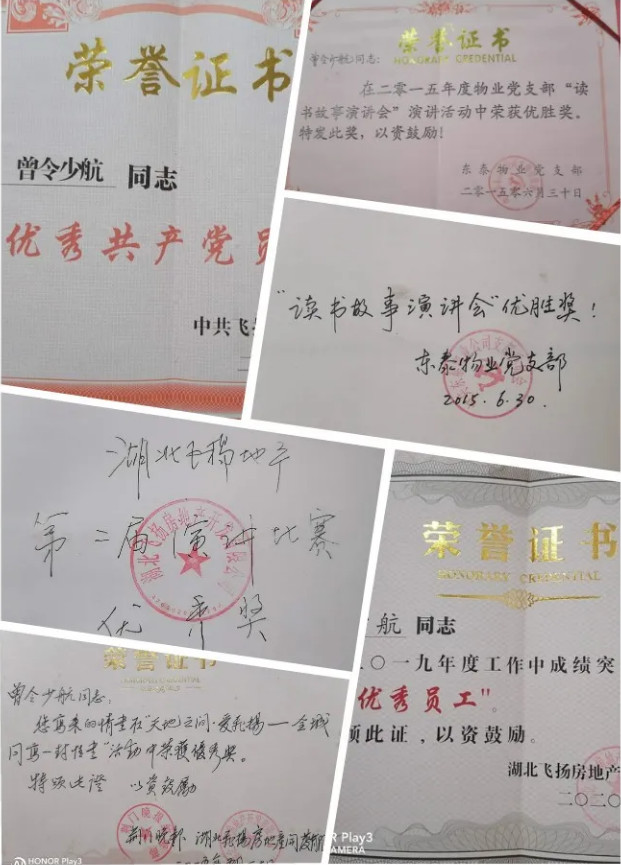 荣誉证书
曾令少航 同志
优秀共产党员
中共飞
荣誉证书
HONORARY CREDENTIAL
曾令少航同志：
在二零一五年度物业党支部“读
书故事演讲会”演讲活动中荣获优胜奖。
特发此奖，以资鼓励！
东泰物业党支部
二零一五零六月三十日
“读书故事演讲会”优胜奖！
东泰物业党支部
2015.6.30.
湖北飞扬地产
第二届演讲比赛
优秀奖
荣誉证书
HONORARY CREDENTIAL
航 同志
二〇一九年度工作中成绩突
优秀员工"。
颁此证，以资鼓励。
湖北飞扬房地产
二〇二〇
荣誉证书
曾令少航同志：
您写来的情书在“天地之间·爱飞扬——全城
同写一封情书”活动中荣获优秀奖。
特颁此证 以资鼓励
荆门晚报 湖北飞扬房地产
HONOR Play3
HONOR Play3
CAMERA